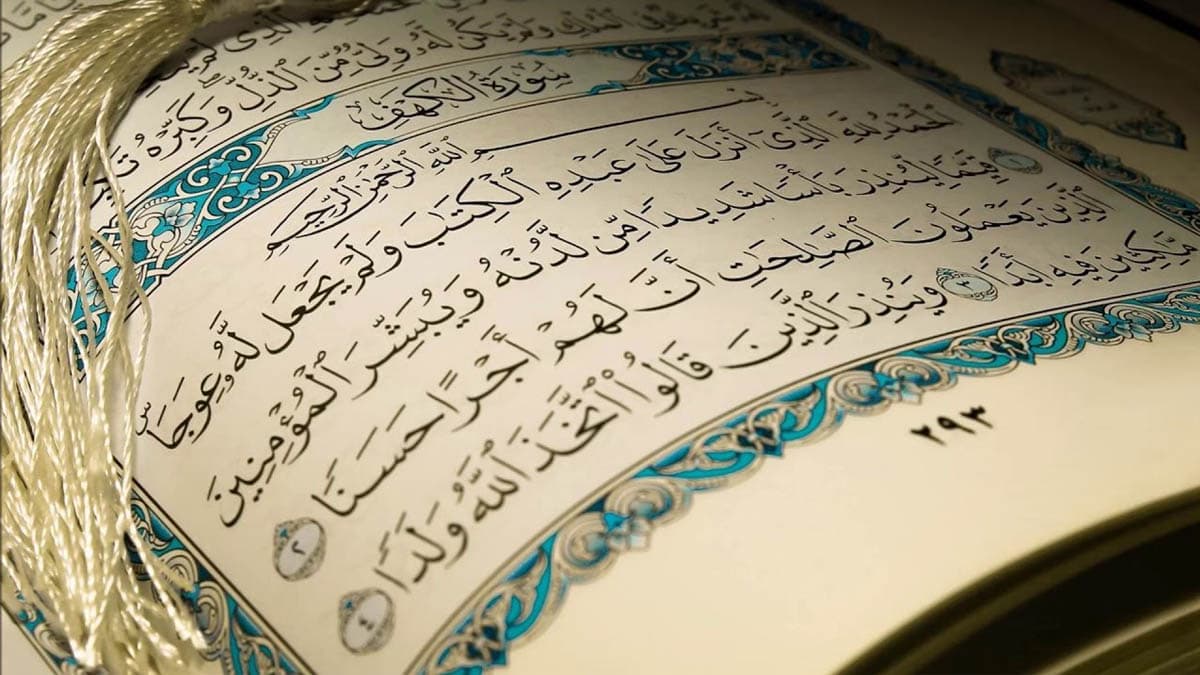 وَلَمْ يَكُن لَّهُۥ وَلِىٌّ مِّنَ ٱلذُّلِّ ۖ وَكَبِّرْهُ
سُورَةُ الكَهْفِ
بِسْمِ ٱللَّهِ ٱلرَّحْمَٰنِ ٱلرَّحِيمِ
ٱلْحَمْدُ لِلَّهِ ٱلَّذِىٓ أَنزَلَ عَلَىٰ عَبْدِهِ ٱلْكِتَٰبَ وَلَمْ يَجْعَل لَّهُۥ عِوَجَا ۜ
١ قَيِّمًا لِّيُنذِرَ بَأْسًا شَدِيدًا مِّن لَّدُنْهُ وَيُبَشِّرَ ٱلْمُؤْمِنِينَ
ٱلَّذِينَ يَعْمَلُونَ ٱلصَّٰلِحَٰتِ أَنَّ لَهُمْ أَجْرًا حَسَنًا ٢
مَّٰكِثِينَ فِيهِ أَبَدًا ٣ وَيُنذِرَ ٱلَّذِينَ قَالُوا۟ ٱتَّخَذَ ٱللَّهُ وَلَدًا ٤
٢٩٣